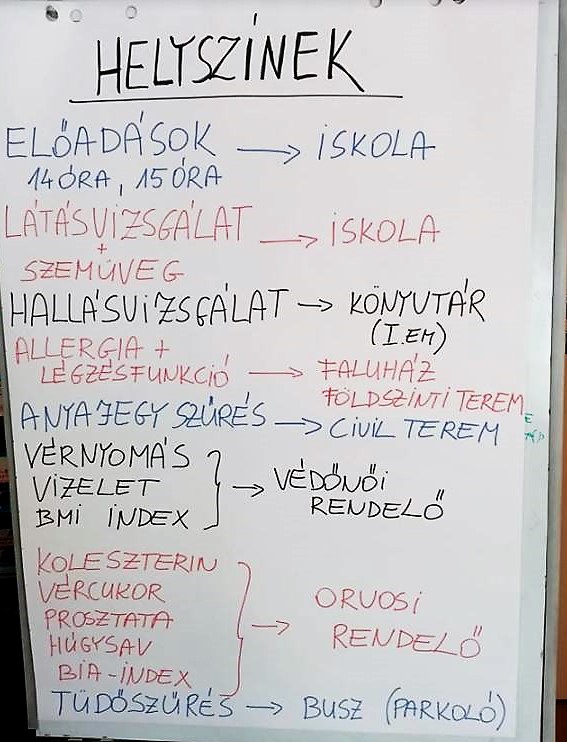 HELYSZÍNEK
ELŐADÁSOK → ISKOLA
14 ÓRA, 15 ÓRA
LÁTÁSVIZSGÁLAT → ISKOLA
+
SZEMÜVEG
HALLÁSVIZSGÁLAT → KÖNYVTÁR
(I.EM)
ALLERGIA +
LÉGZÉSFUNKCIÓ → FALUHÁZ
FÖLDSZINTI TEREM
ANYAJEGY SZŰRÉS → CIVIL TEREM
VÉRNYOMÁS
VIZELET → VÉDŐNŐI
BMI INDEX RENDELŐ
KOLESZTERIN
VÉRCUKOR ORVOSI
PROSZTATA → RENDELŐ
HÚGYSAV
BIA-INDEX
TÜDŐSZŰRÉS → BUSZ (PARKOLÓ)